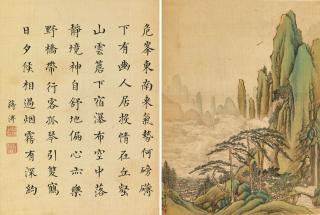 危峯東南來氣勢何磅礴
下有幽人居投情在丘壑
山雲簷下宿瀑布空中落
静境神自舒地偏心亦樂
野橋帶行客孤琴引雙鶴
日夕候相過烟霧有深約
蔣溥